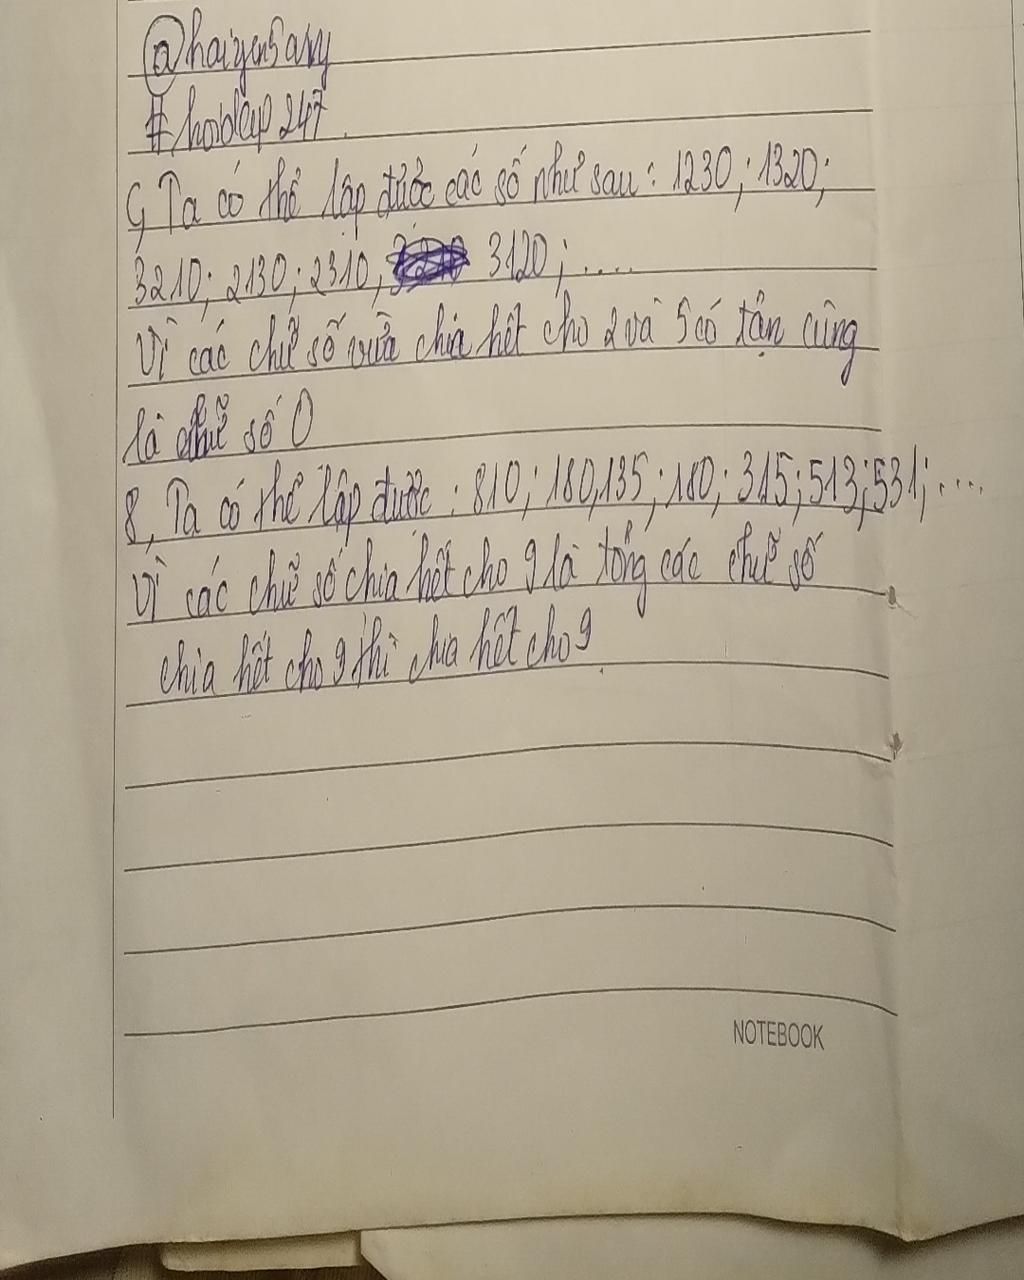 @haiyen5any
#hoidap247.
9, Ta có thể lập được các số như sau: 1230; 1320;
3210; 2130; 2310, 3120; ....
Vì các chữ số vừa chia hết cho 2 và 5 có tận cùng
là chữ số 0
8, Ta có thể lập được: 810; 180, 135; 180; 315; 513; 531; ....
Vì các chữ số chia hết cho 9 là tổng các chữ số
chia hết cho 9 thì chia hết cho 9
NOTEBOOK